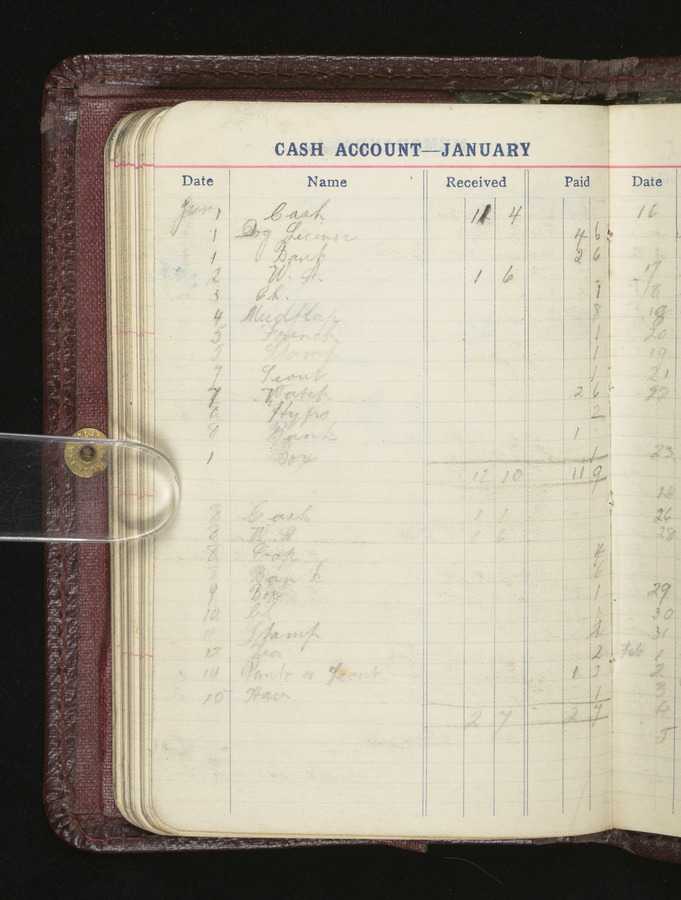 CASH ACCOUNT—JANUARY
Date Name Received Paid Date
Jan 1 Cash 11 4 16
1 Dog License 4 6
1 Bank 2 6
2 W. St. 1 6 17
3 Ch. 1 18
4 Mudflap 8 19
5 French 1 20
5 Stamp 1 19
7 Scout 1 21
7 Watch 2 6 22
8 Hypo 2
8 Bank 1
1 Box 1 23
12 10 11 9
8 Cash 1 1 26
8 W. St 1 6 28
8 4
Bank 6
9 Box 1 29
10 1 30
11 Stamp 4 31
12 Tea 2 Feb 1
14 Pants or Scout 1 3 2
15 1 3
2 7 2 7 4
5